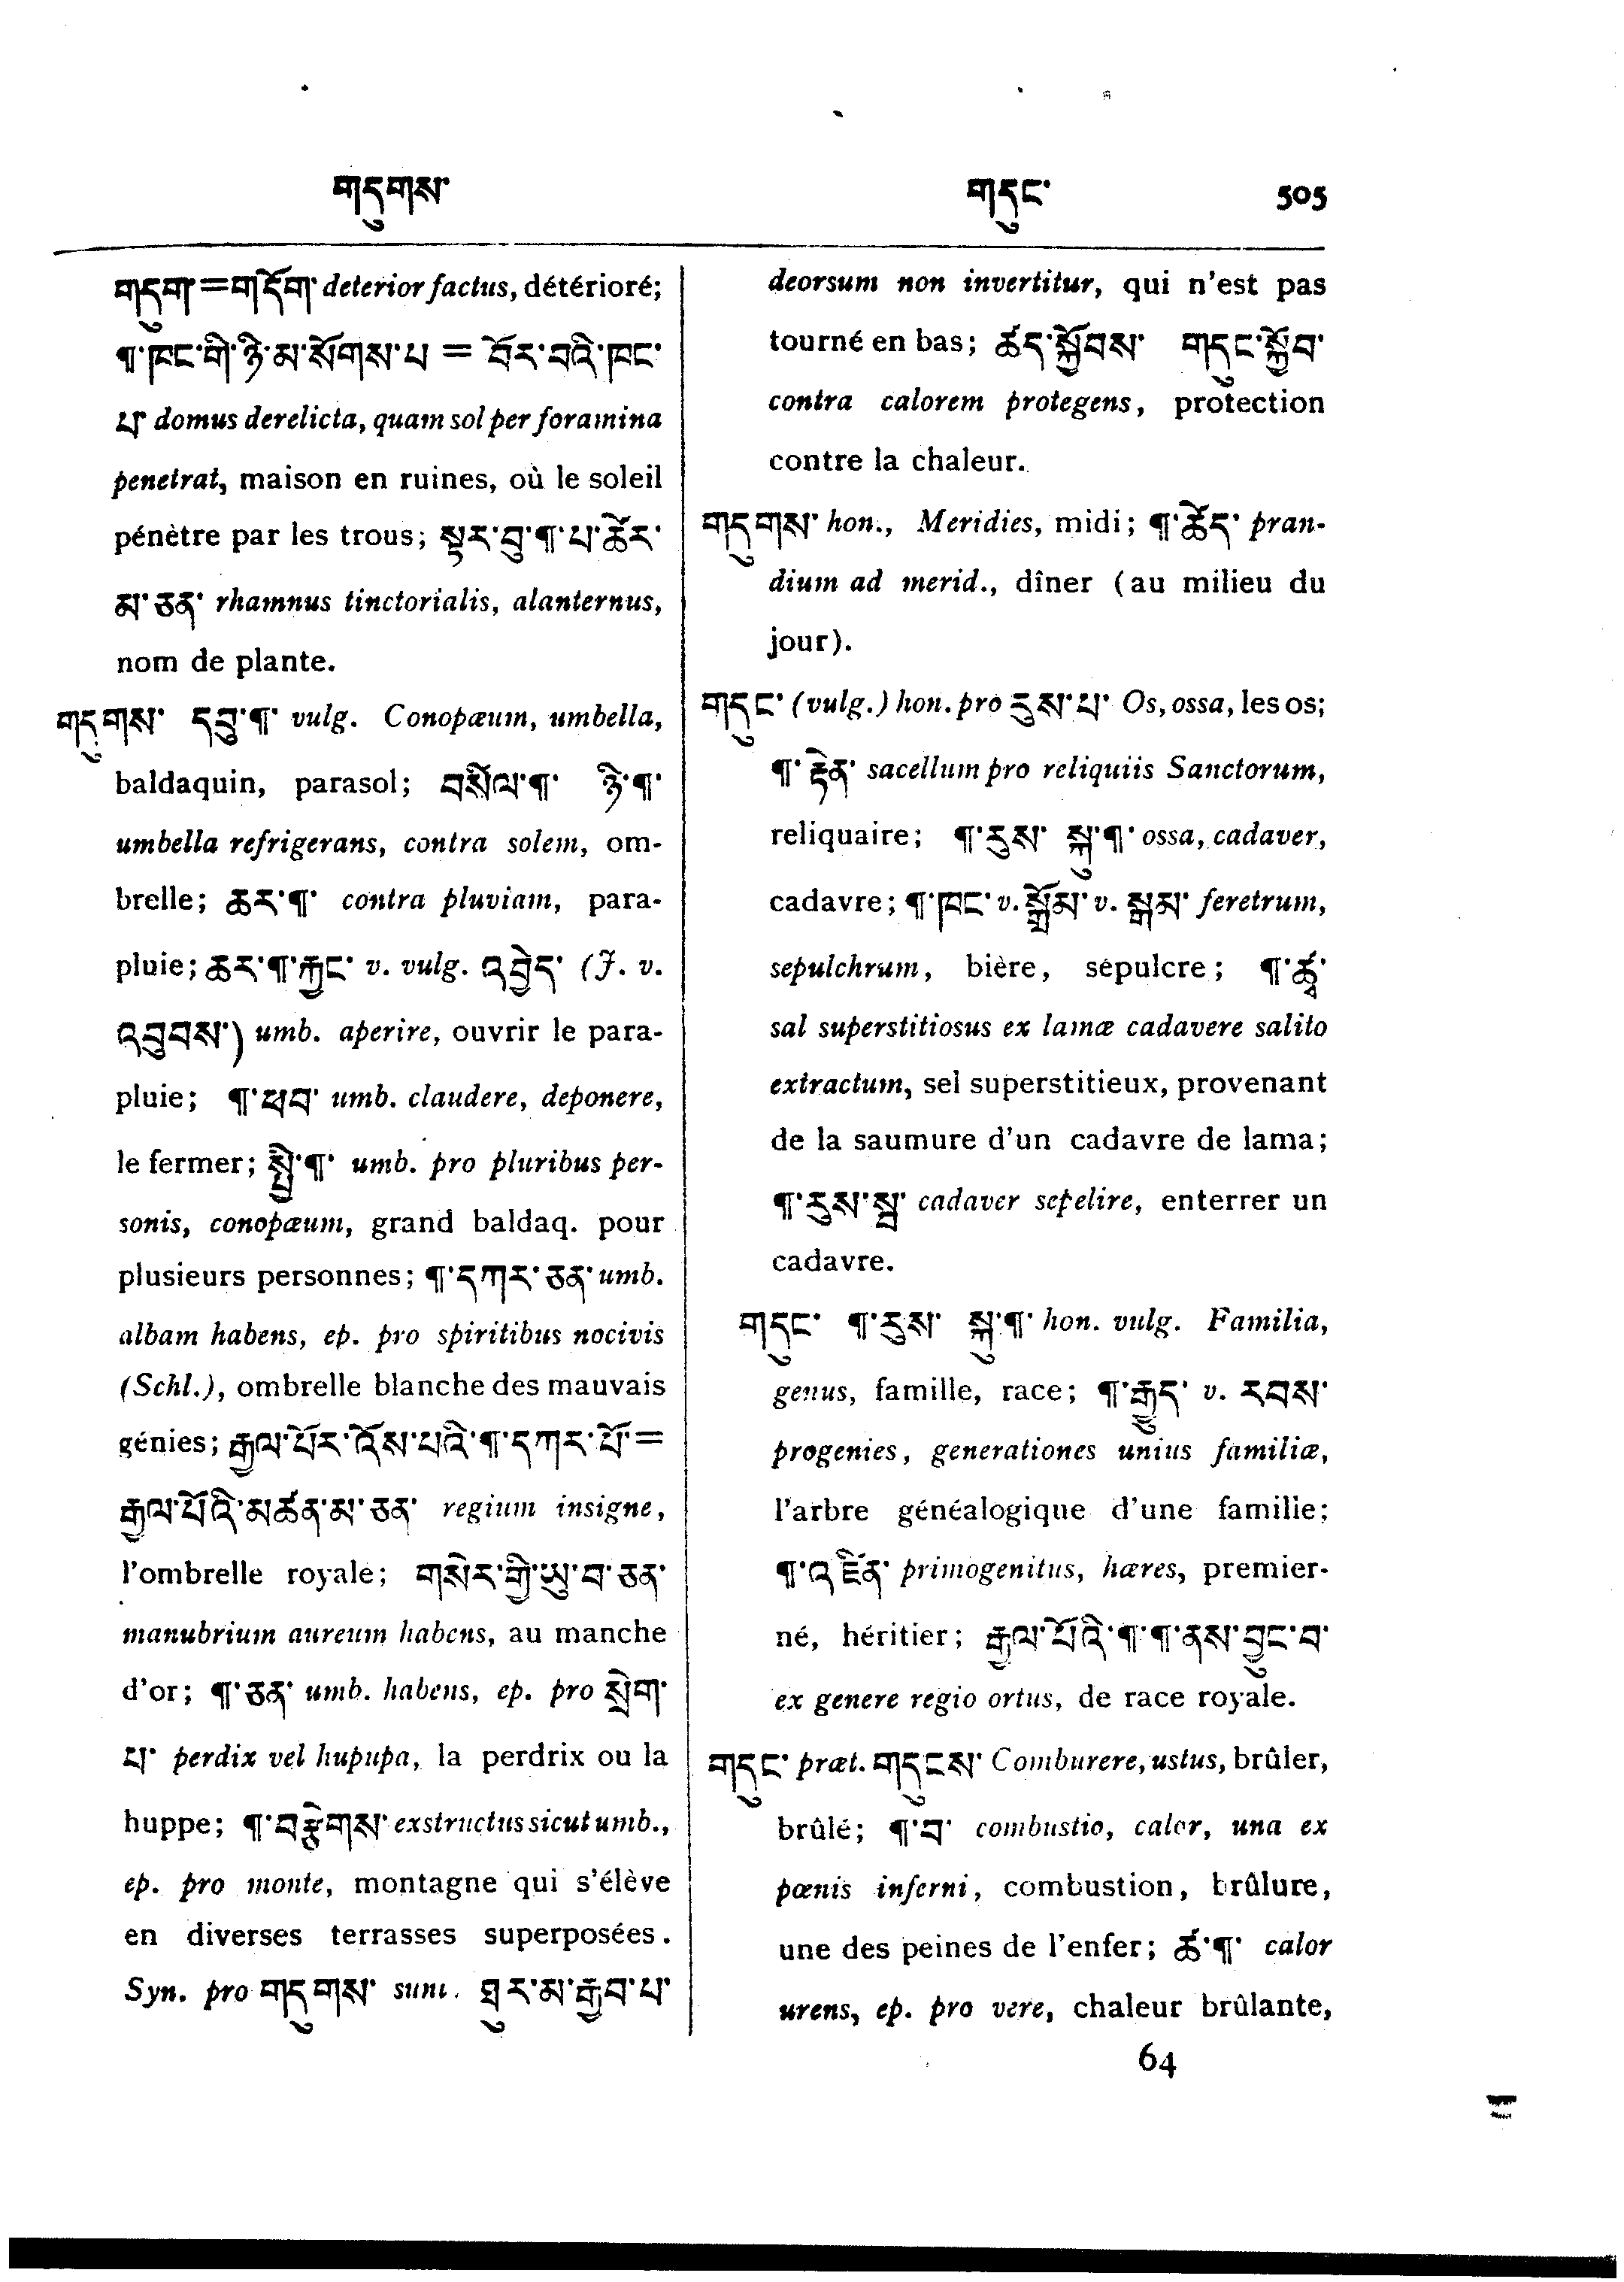 གདུགས་
གདུང་ 505
གདུག་=གདོག་ deterior factus, détérioré;
¶་ཁང་གི་ཉི་མ་སོགས་པ = བོར་བའི་ཁང་
པ་ domus derelicta, quam sol per foramina
penetrat, maison en ruines, où le soleil
pénètre par les trous; སྟར་བུ་¶་པ་ཚེར་
མ་ཅན་ rhamnus tinctorialis, alanternus,
nom de plante.
གདུགས་ དབུ་¶་ vulg. Conopæum, umbella,
baldaquin, parasol; བསིལ་¶་ ཉི་¶་
umbella refrigerans, contra solem, om-
brelle; ཆར་¶་ contra pluviam, para-
pluie; ཆར་¶་རྐྱང་ v. vulg. འབྱེད་ (J. v.
འབུབས་) umb. aperire, ouvrir le para-
pluie; ¶་ཕབ་ umb. claudere, deponere,
le fermer; སྤྱི་¶་ umb. pro pluribus per-
sonis, conopæum, grand baldaq. pour
plusieurs personnes; ¶་དཀར་ཅན་ umb.
albam habens, ep. pro spiritibus nocivis
(Schl.), ombrelle blanche des mauvais
génies; རྒྱལ་པོར་འོས་པའི་¶་དཀར་པོ་=
རྒྱལ་པོའི་མཚན་མ་ཅན་ regium insigne,
l'ombrelle royale; གསེར་གྱི་ཡུ་བ་ཅན་
manubrium aureum habens, au manche
d'or; ¶་ཅན་ umb. habens, ep. pro སྲེག་
པ་ perdix vel hupupa, la perdrix ou la
huppe; ¶་བརྩེགས་ exstructus sicut umb.,
ep. pro monte, montagne qui s'élève
en diverses terrasses superposées.
Syn. pro གདུགས་ sunt. ཐུར་མ་རྒྱབ་པ་
deorsum non invertitur, qui n'est pas
tourné en bas; ཚད་སྐྱོབས་ གདུང་སྐྱོབ་
contra calorem protegens, protection
contre la chaleur.
གདུགས་ hon., Meridies, midi; ¶་ཚོད་ pran-
dium ad merid., dîner (au milieu du
jour).
གདུང་ (vulg.) hon. pro རུས་པ་ Os, ossa, les os;
¶་རྟེན་ sacellum pro reliquiis Sanctorum,
reliquaire; ¶་རུས་ སྐུ་¶་ ossa, cadaver,
cadavre; ¶་ཁང་ v. སྒྲོམ་ v. སྒམ་ feretrum,
sepulchrum, bière, sépulcre; ¶་ཚྭ་
sal superstitiosus ex lamæ cadavere salito
extractum, sel superstitieux, provenant
de la saumure d'un cadavre de lama;
¶་རུས་སྦ་ cadaver sepelire, enterrer un
cadavre.
གདུང་ ¶་རུས་ སྐུ་¶་ hon. vulg. Familia,
genus, famille, race; ¶་རྒྱུད་ v. རབས་
progenies, generationes unius familiæ,
l'arbre généalogique d'une familie;
¶་འཛིན་ primogenitus, hæres, premier-
né, héritier; རྒྱལ་པོའི་¶་¶་ནས་བྱུང་བ་
ex genere regio ortus, de race royale.
གདུང་ præt. གདུངས་ Comburere, ustus, brûler,
brûlé; ¶་བ་ combustio, calor, una ex
pœnis inferni, combustion, brûlure,
une des peines de l'enfer; ཚ་¶་ calor
urens, ep. pro vere, chaleur brûlante,
64